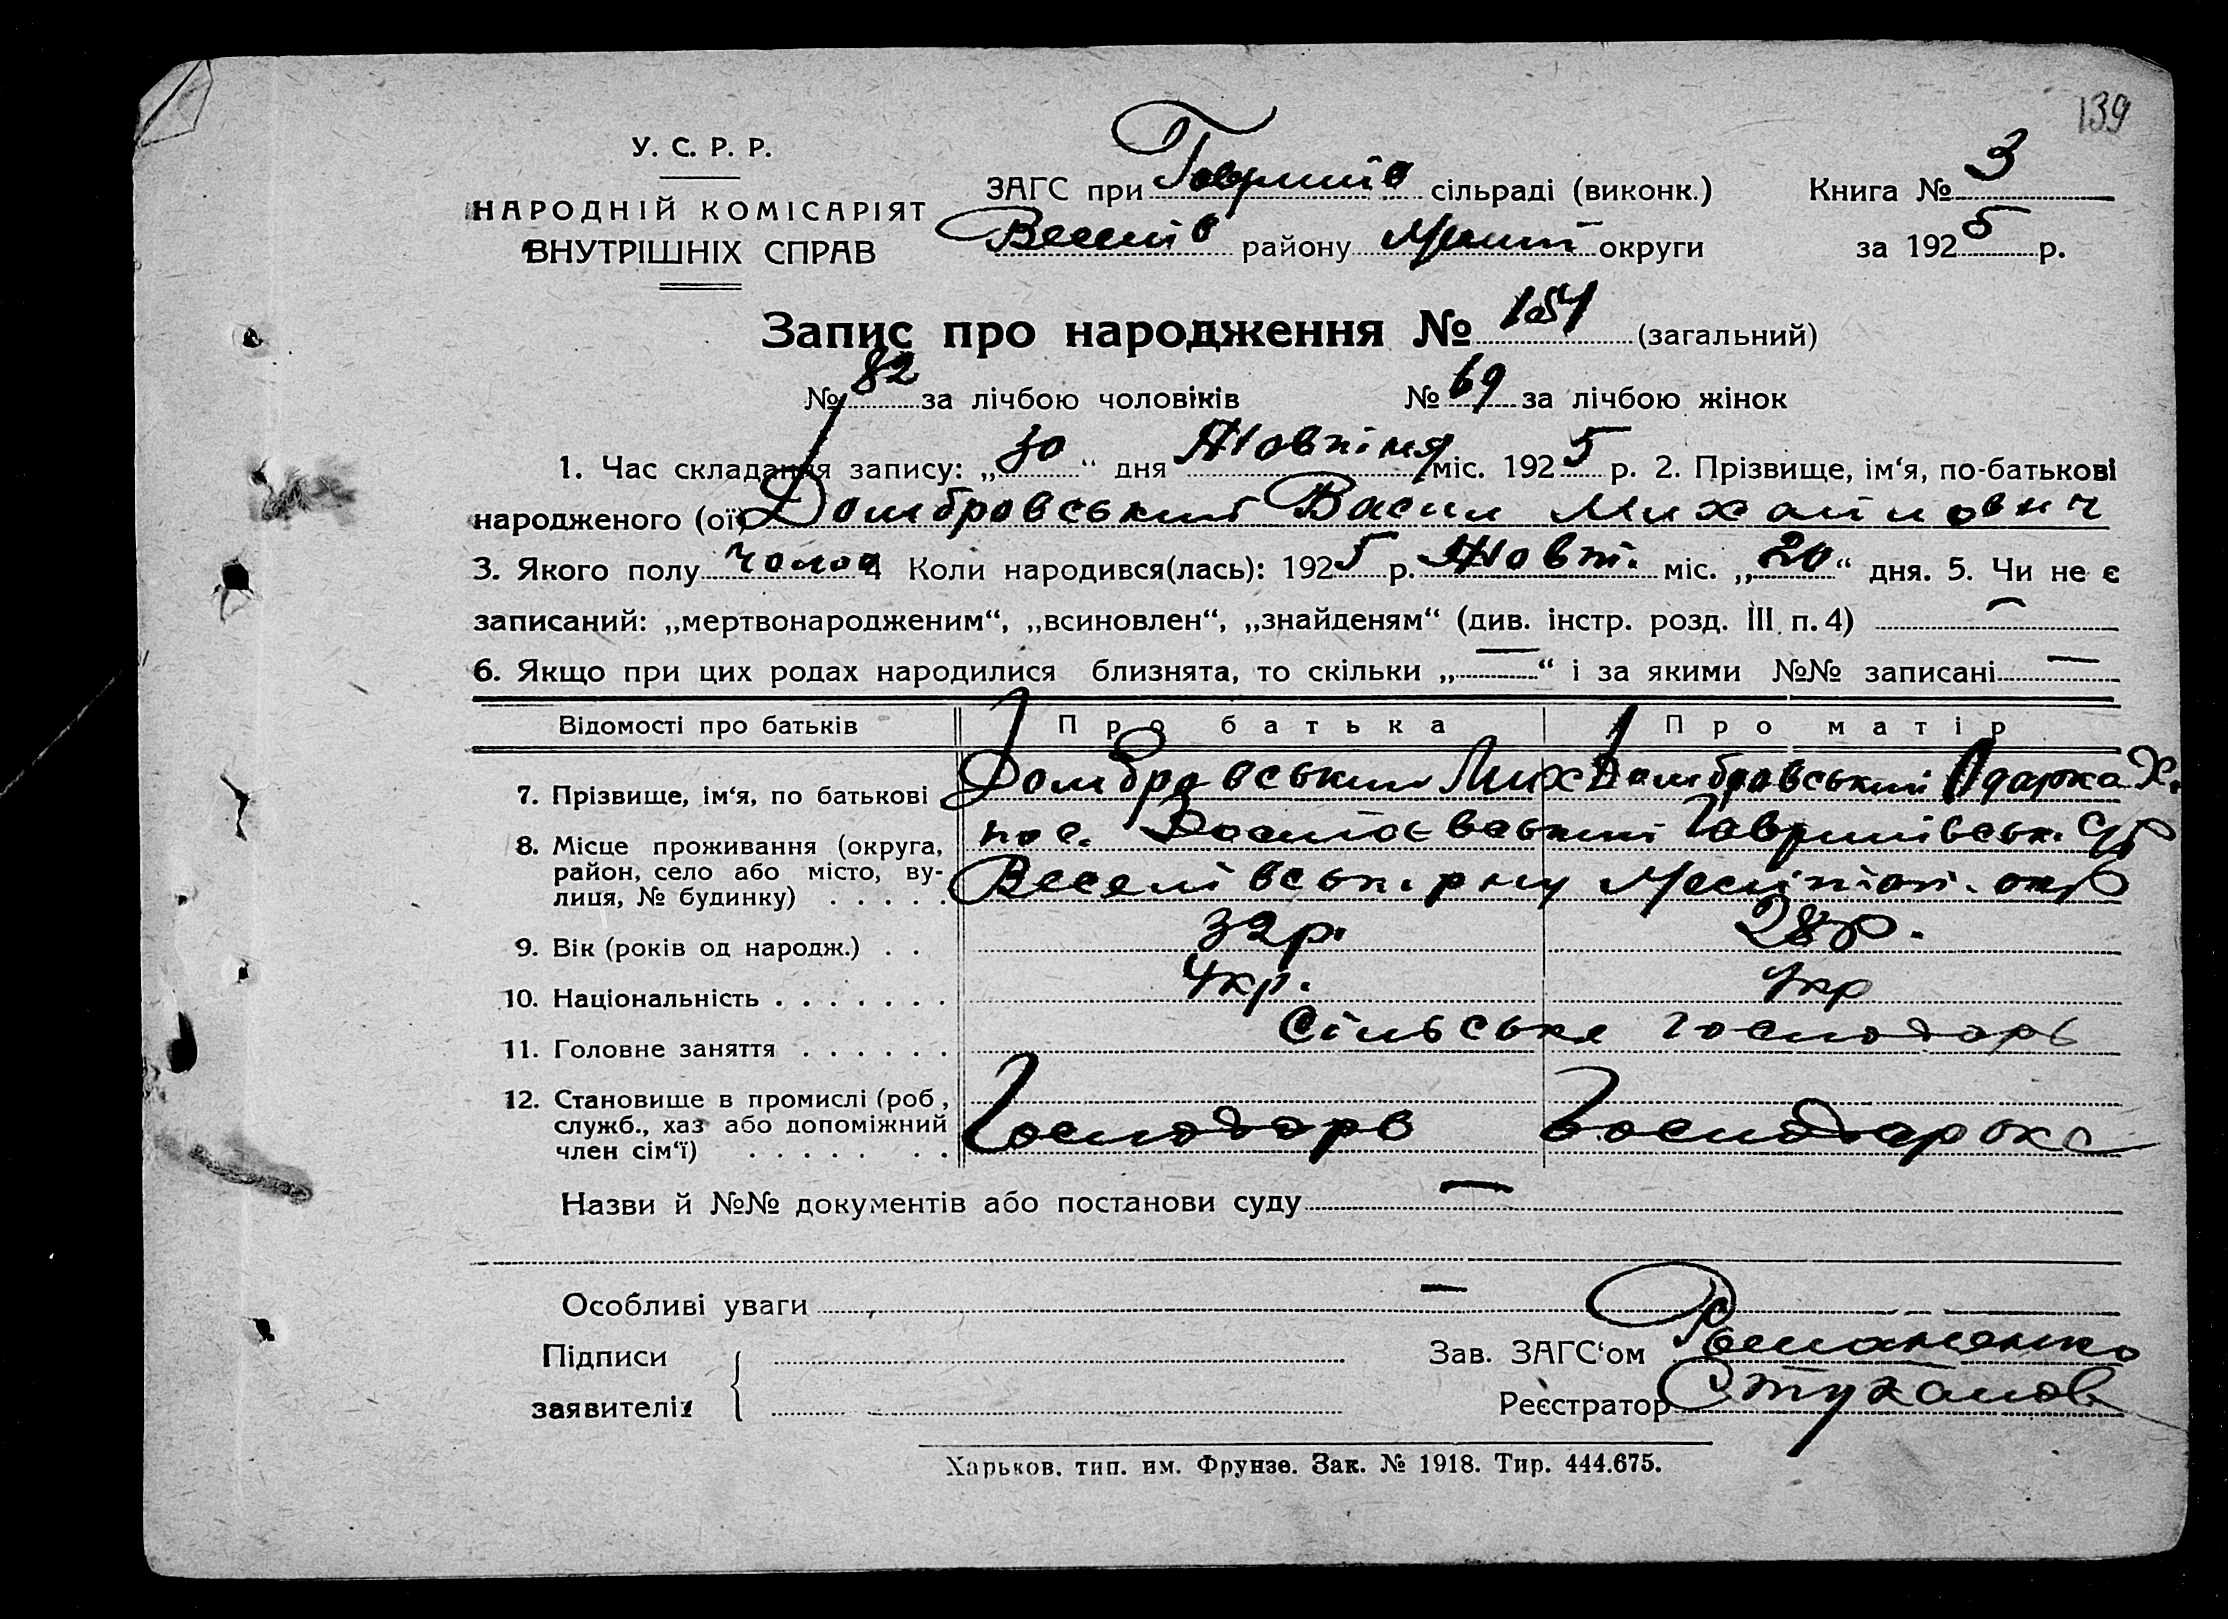 139
У. С. Р. Р.
НАРОДНІЙ КОМІСАРІЯТ
ВНУТРІШНІХ СПРАВ
ЗАГС при Гаврилів сільраді (виконк.) Книга № 3
Веселів району Меліт округи за 1925 р.
Запис про народження № 151 (загальний)
№ 82 за лічбою чоловіків № 69 за лічбою жінок
1. Час складання запису: „30“ дня Жовтня міс. 1925 р. 2. Прізвище, ім‘я, по-батькові
народженого (ої) Домбровський Васил Михайлович
3. Якого полу чолов 4 Коли народився(лась): 1925 р. Жовт. міс. „20“ дня. 5. Чи не є
записаний: „мертвонародженим“, „всиновлен“, „знайденям“ (див. інстр. розд. III п. 4) —
6. Якщо при цих родах народилися близнята, то скільки „—“ і за якими №№ записані —
Відомості про батьків Про батька Про матір
7. Прізвище, ім‘я, по батькові Домбровський Мих Домбровський Одарка Х.
8. Місце проживання (округа, район, село або місто, вулиця, № будинку) . . . . . пос. Гаврилівськ. с/р
Веселівськ. р-ну Меліт. окр
9. Вік (років од народж.) . . 32 р. 28 р.
10. Національність . . . . . . . Укр. Укр
11. Головне заняття . . . . . . Сільське господарь
12. Становище в промислі (роб, служб., хаз або допоміжний член сім‘ї) . . . . . . . Господарь Господарка
Назви й №№ документів або постанови суду —
Особливі уваги —
Підписи
заявителів
Зав. ЗАГС‘ом Романенко
Реєстратор Стукалов
Харьков. тип. им. Фрунзе. Зак. № 1918. Тир. 444.675.